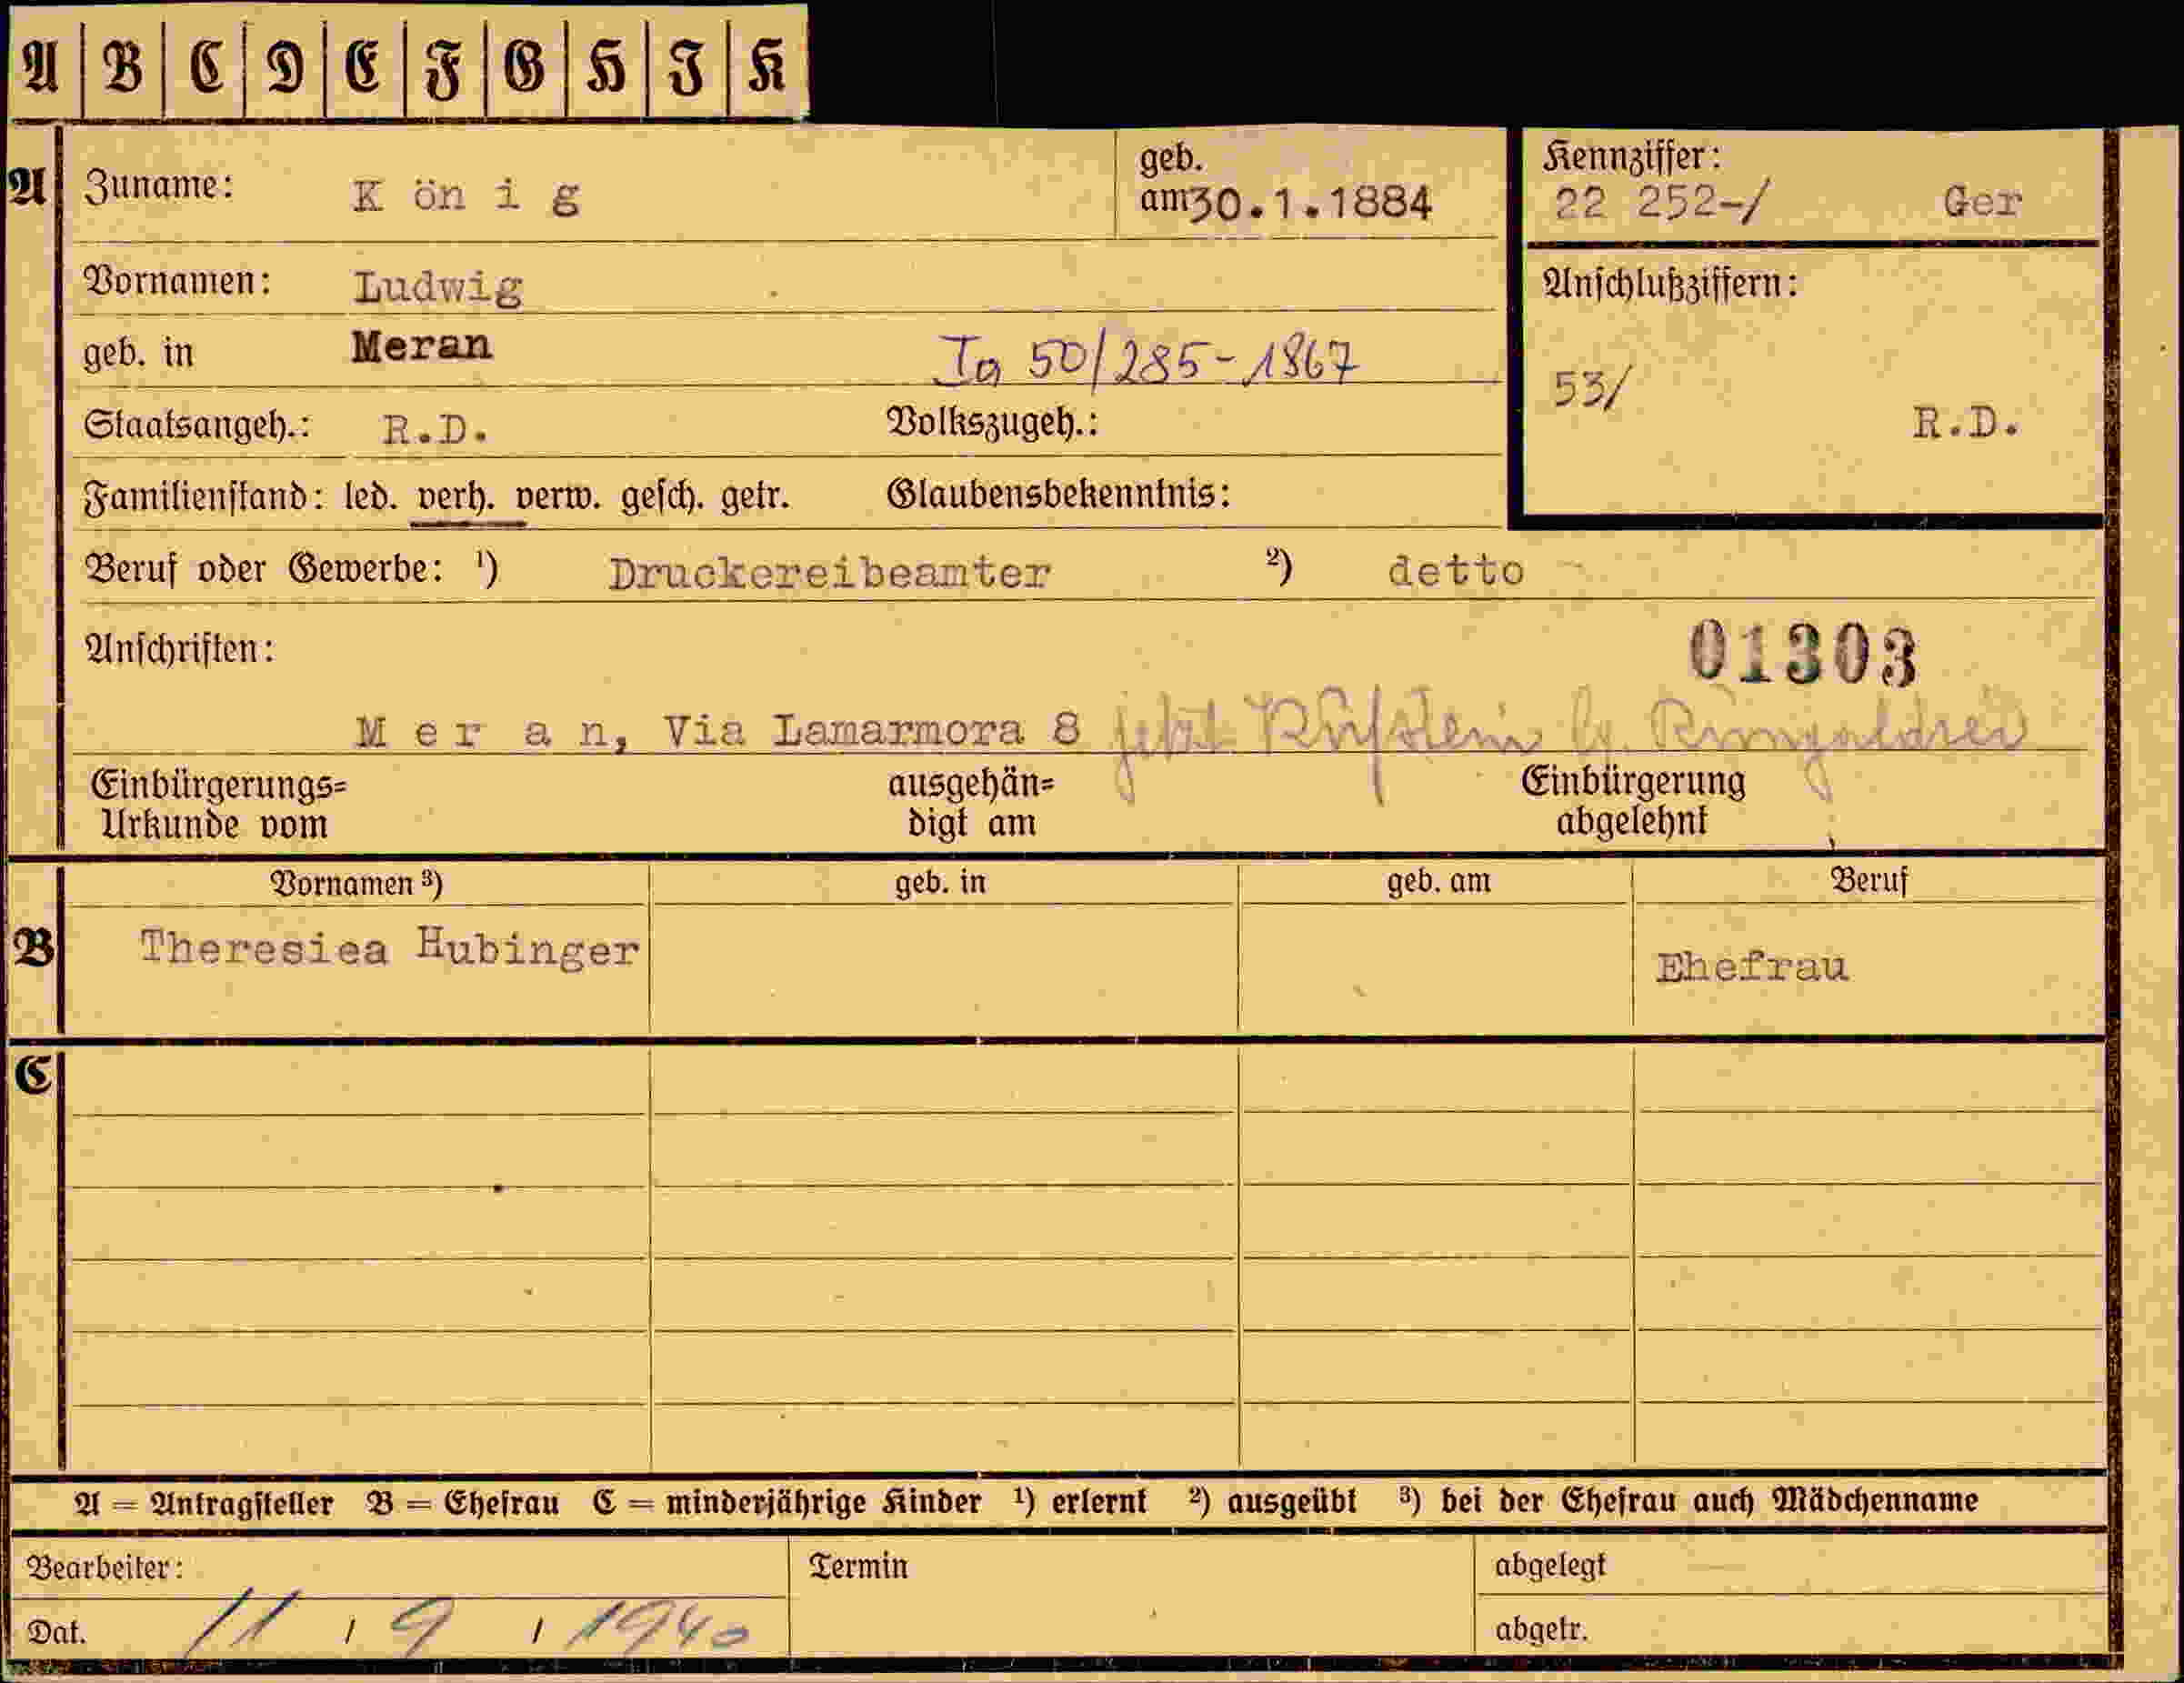 A B C D E F G H J K
A Zuname: K ön i g geb. am 30.1.1884 Kennziffer: 22 252-/ Ger
Vornamen: Ludwig Anschlußziffern:
geb. in Meran Ia 50/285-1867 53/
Staatsangeh.: R.D. Volkszugeh.: R.D.
Familienstand: led. verh. verw. gesch. getr. Glaubensbekenntnis:
Beruf oder Gewerbe: ¹) Druckereibeamter ²) detto
Anschriften: 01303
M e r a n, Via Lamarmora 8 jetzt Kufstein
Einbürgerungs=
Urkunde vom
ausgehän=
digt am
Einbürgerung
abgelehnt
Vornamen ³) geb. in geb. am Beruf
B Theresiea Hubinger Ehefrau
C
A = Antragsteller B = Ehefrau C = minderjährige Kinder ¹) erlernt ²) ausgeübt ³) bei der Ehefrau auch Mädchenname
Bearbeiter: Termin abgelegt
Dat. 11 / 9 / 1940 abgetr.